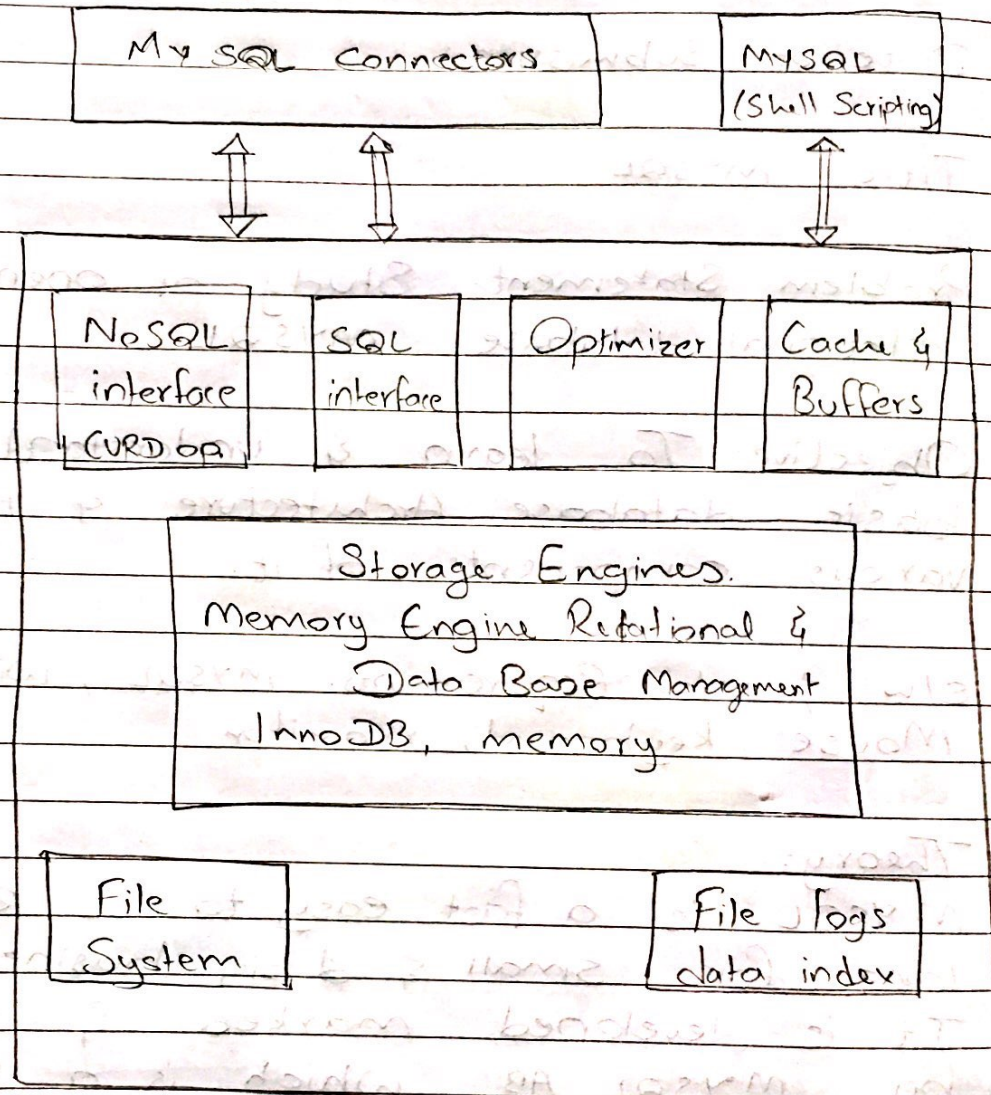 My SQL Connectors
MYSQL
(Shell Scripting)
NoSQL
interface
CURD op
SQL
interface
Optimizer
Cache &
Buffers
Storage Engines.
Memory Engine Relational &
Data Base Management
InnoDB, memory
File
System
File logs
data index